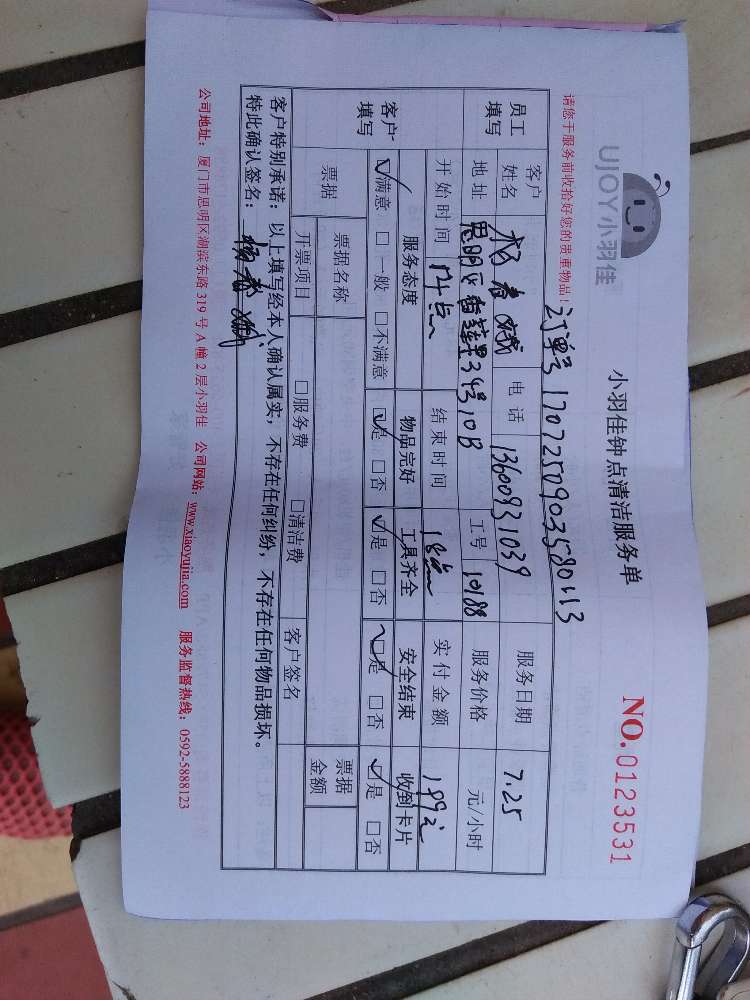 UJOY小羽佳
小羽佳钟点清洁服务单
NO.0123531
请您于服务前收拾好您的贵重物品！
订单号 17072509035801113
员工填写
客户姓名 杨春娥 电话 13600931039 服务日期 7.25
地址 思明区香莲里34号10B 工号 10188 服务价格 元/小时
开始时间 14点 结束时间 18点 实付金额 199元
客户填写
服务态度 物品完好 工具齐全 安全结束 收到卡片
☑满意 □一般 □不满意 ☑是 □否 ☑是 □否 ☑是 □否 ☑是 □否
票据 票据名称 票据金额
开票项目 □服务费 □清洁费 客户签名
客户特别承诺：以上填写经本人确认属实，不存在任何纠纷，不存在任何物品损坏。
特此确认签名：杨春娥
公司地址：厦门市思明区湖滨东路 319 号 A 幢 2 层小羽佳 公司网站：www.xiaoyujia.com 服务监督热线：0592-5888123